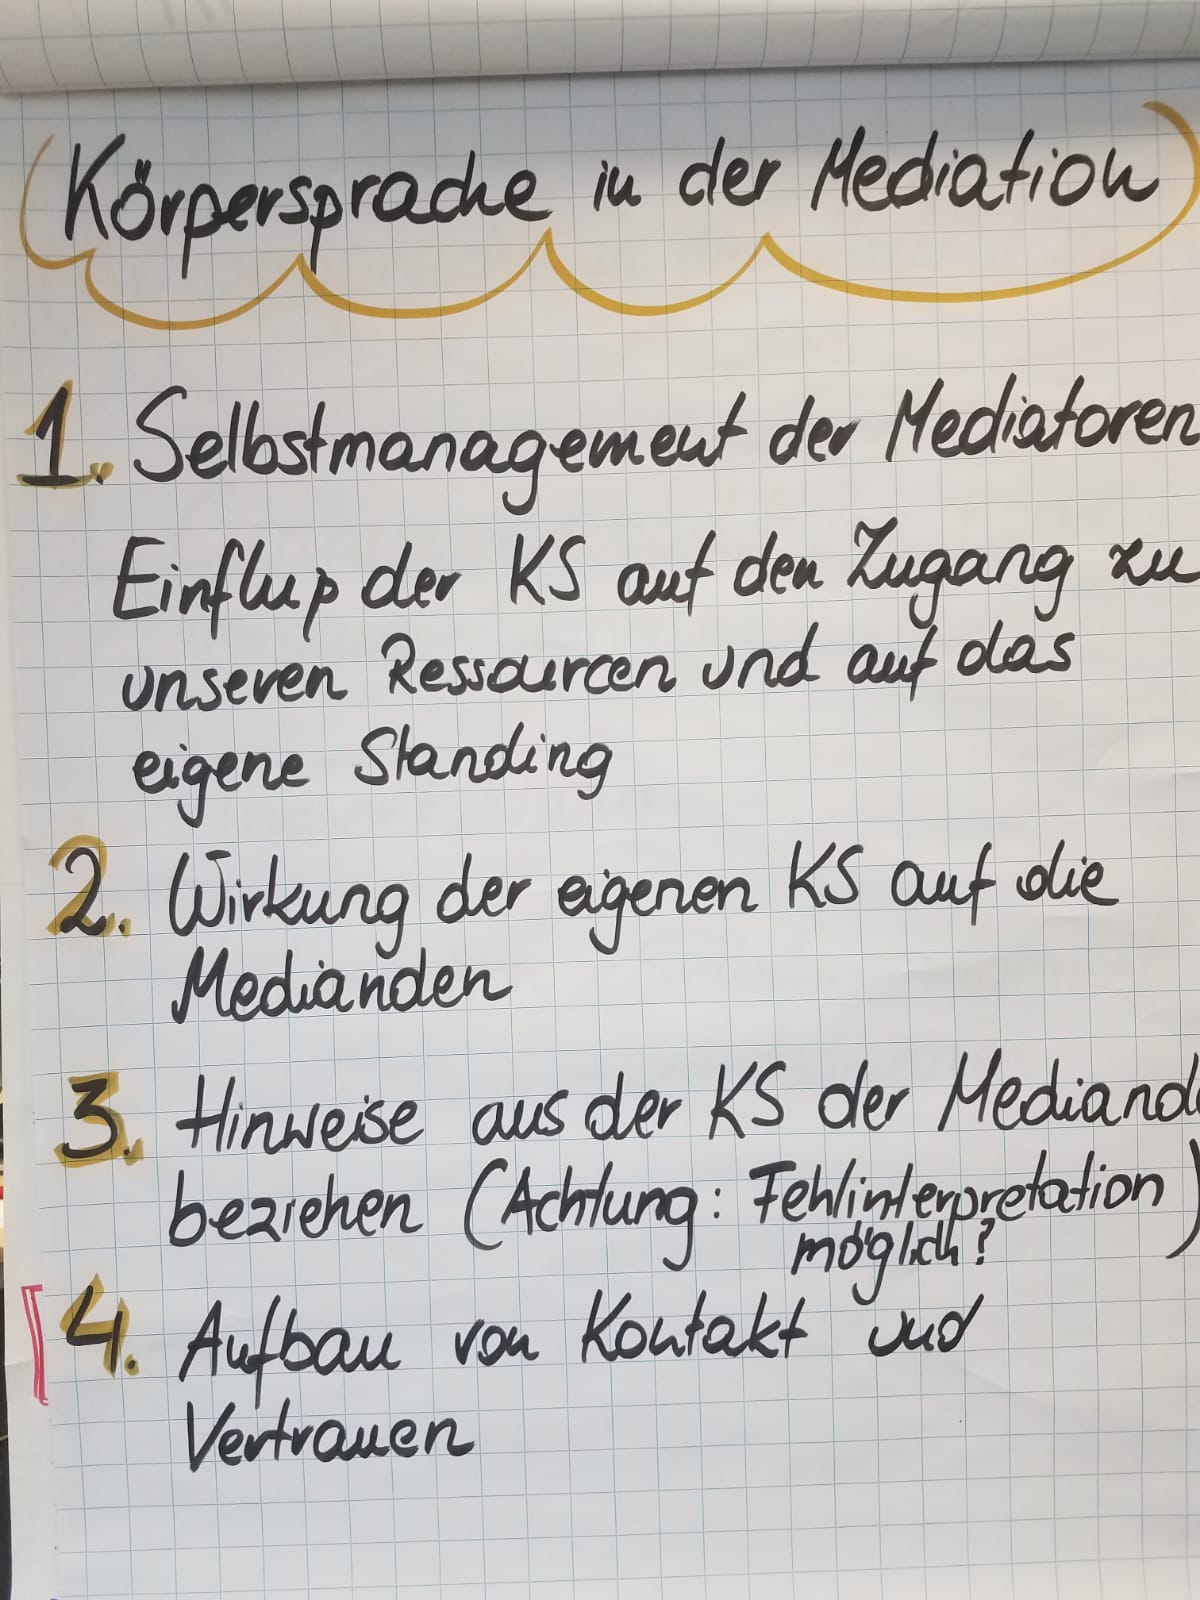 Körpersprache in der Mediation
1. Selbstmanagement der Mediatoren
Einfluß der KS auf den Zugang zu
unseren Ressourcen und auf das
eigene Standing
2. Wirkung der eigenen KS auf die
Medianden
3. Hinweise aus der KS der Mediand
beziehen (Achtung: Fehlinterpretation)
möglich?
4. Aufbau von Kontakt und
Vertrauen